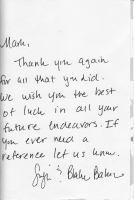 Mom,
Thank you again
for all that you did.
We wish you the best
of luck in all your
future endeavors. If
you ever need a
reference let us know.
& Blake